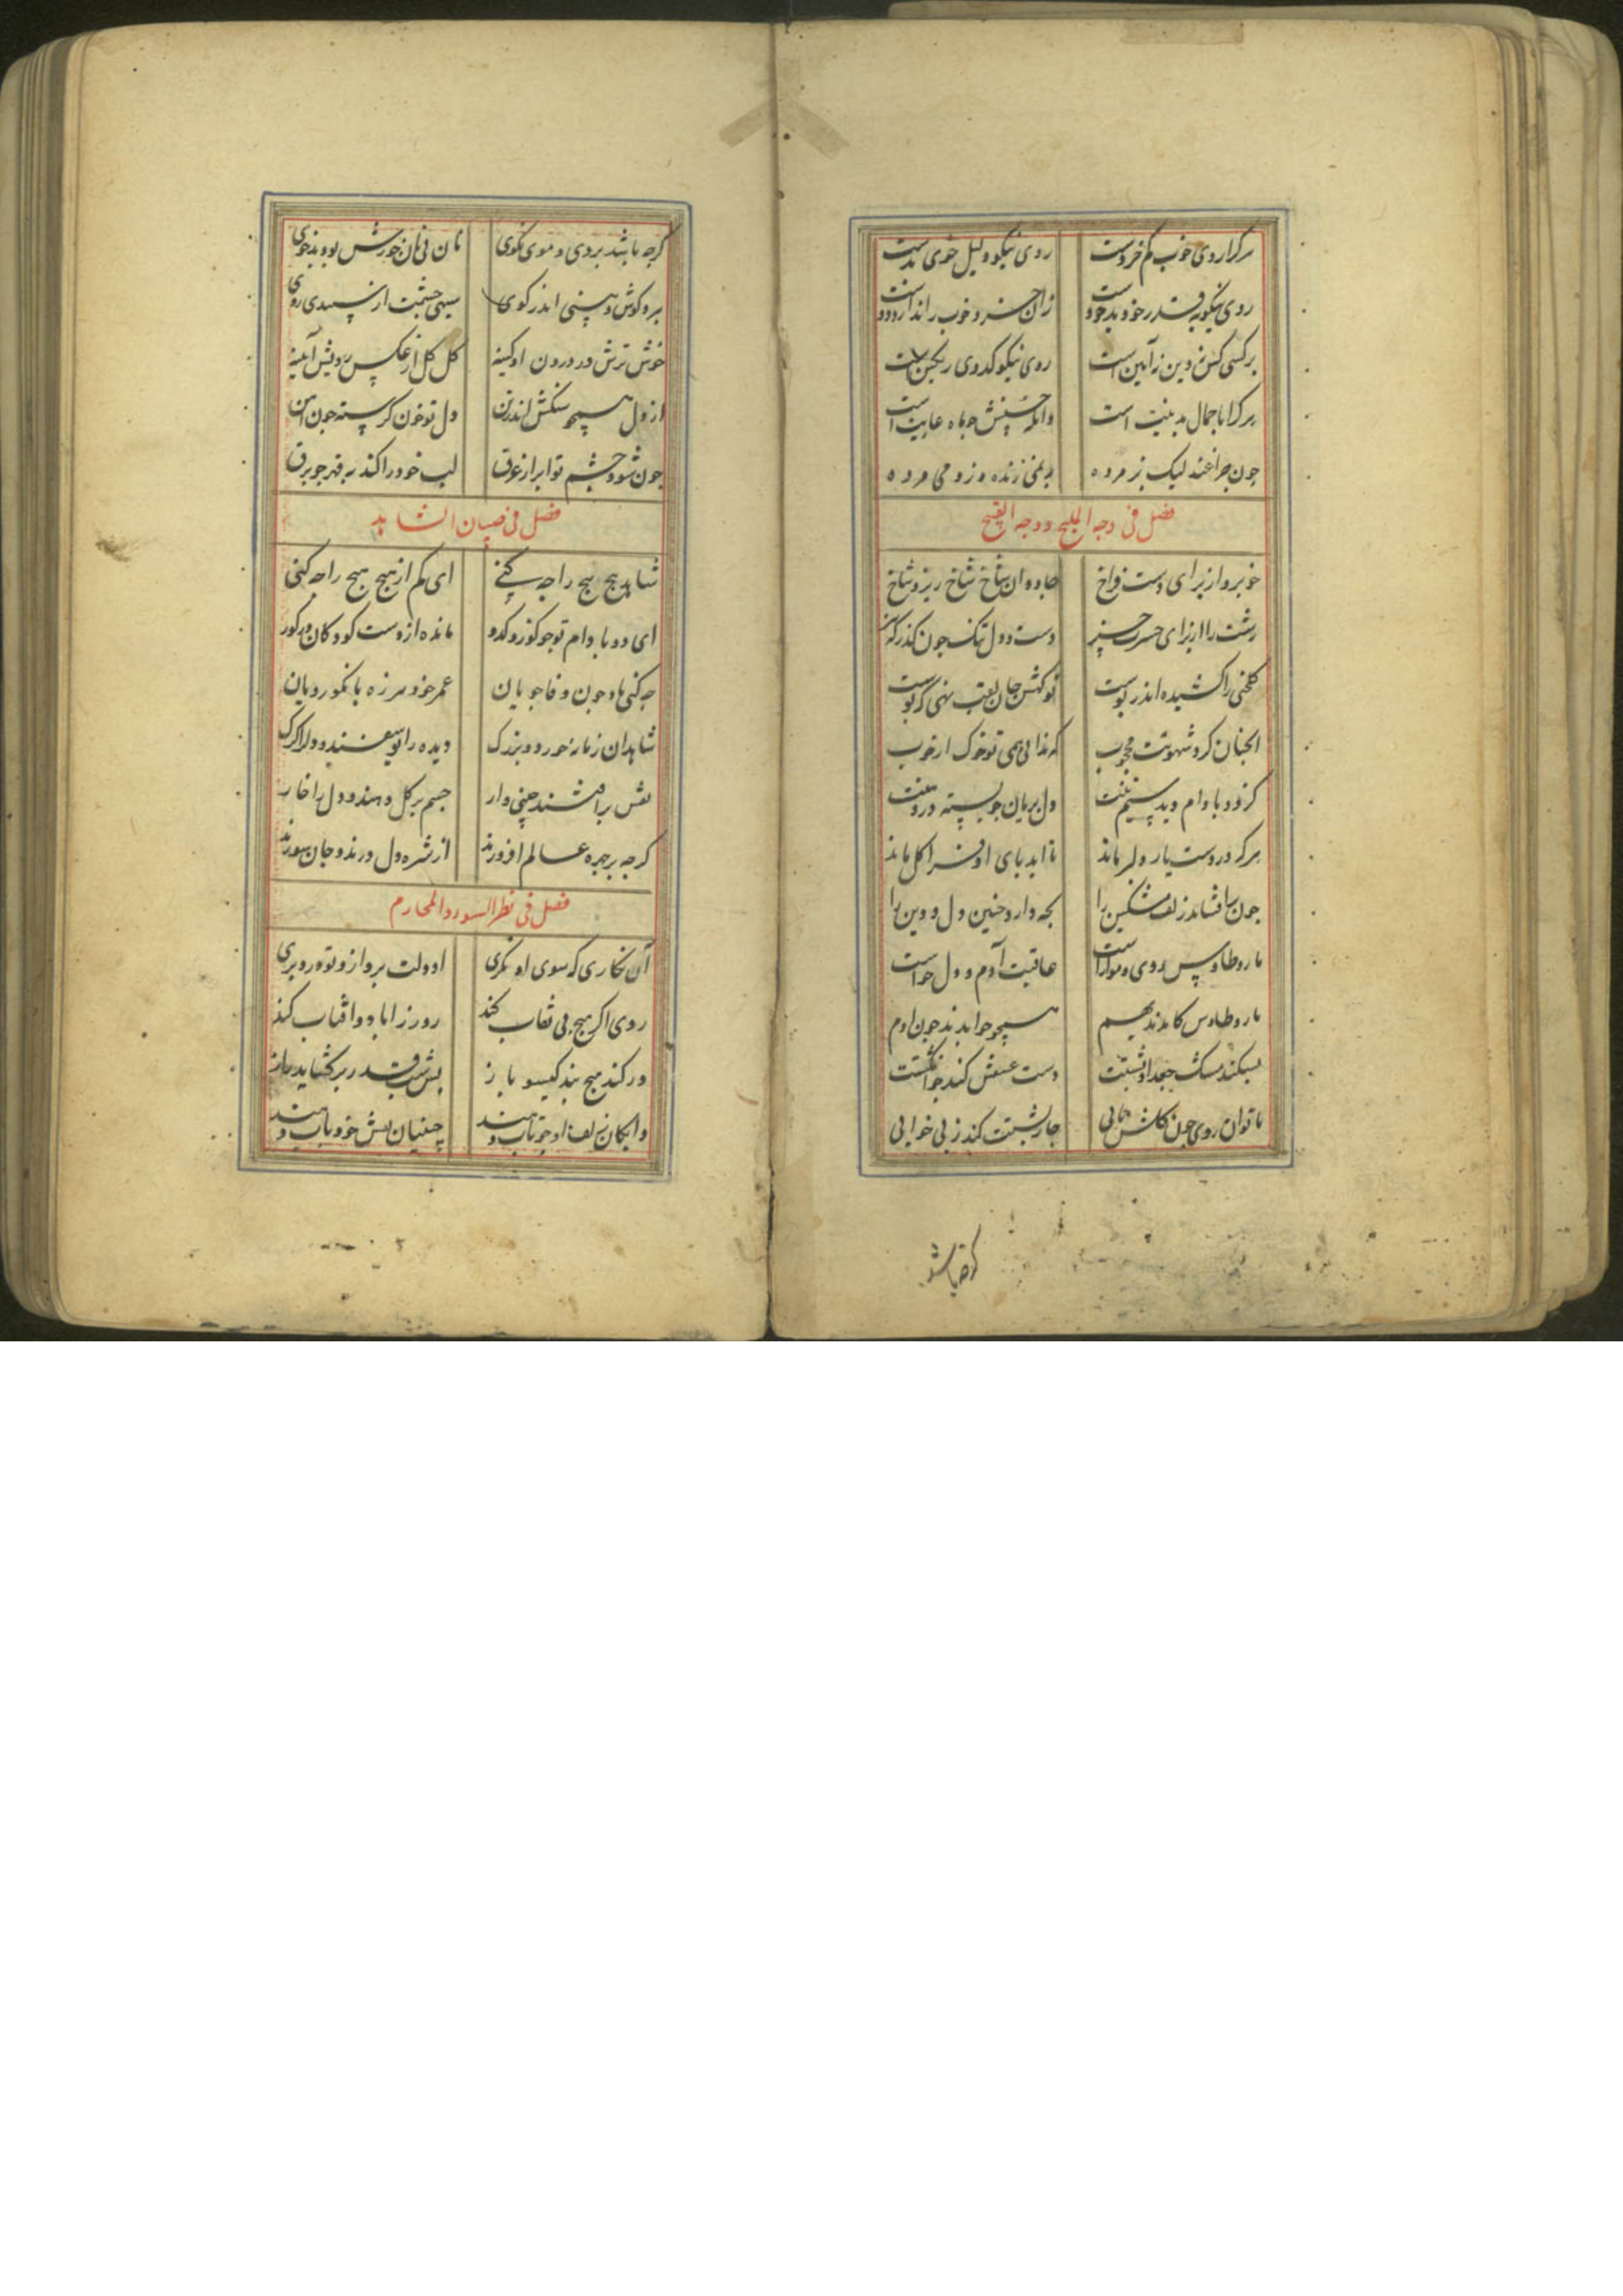 هرکرا روی خوب کم خردست روی نیکو دلیل خوی بدست
روی نیکو بقدر خود بد خوست زان
بر کسی کش نه دین نه آیین است روی نیکو کدوی رنگین است
هرکرا با جمال بد نیت است وانکه حسنیش جو ماه عاریت است
چون جراغند لیک نز مرده به نمی زنده وز دمی مرده
فصل فی وجه الملیح و وجه القبیح
خوبرو از برای دست فراخ جاودان شاخ شاخ ریزد شاخ
زشت را از برای حسرت جیز دست و دل تنک جون کذر
کلخنی را کشیده اندر پوست
انجنان کرد شهوتت محجوب که ندانی همی تو خوک از خوب
کز دو بادام و بد پسته تنت دل بریان جو پسته در دهنت
هرکه در دست یار دلبر ماند تا ابد بای او فرا کل ماند
جون بیافشاند زلف مشکین را بجه دارد جنین دل و دین را
مار و طاوس روی و مو او راست عاقبت آدم و دل حواست
مار و طاوس کامدند بهم همجو حوا بدند جون ادم
بشکند مشک جعد او پشتت دست عشقش کند جو انکشت
تا توان روی جون کلش یابی جار پشتت کند ز بی خوابی
کرجه باشد
کرجه باشد بروی و موی نکوی نان بی نان خورش بود بدخوی
بر و کوش و بینی اندر کوی سیهی جشمت از سپیدی روی
خوش ترش در درون او کینه کل کل از عکس رویش آیینه
از دل همجو سنکش اندر تن دل تو خون کرسته جون آهن
جون شود جشم تو ابر از غرق لب خود را کند به قهر جو برق
فصل فی صبیان الشاهد
شاهد هیج هیج را جه کنی ای کم از هیج هیج را جه کنی
ای دو بادام تو جو کوز و کدو مانده از دست کودکان در کور
جه کنی با دجون وفا جویان عمر خود هرزه با نکو رویان
شاهدان زمانه خرد و بزرک دیده را یوسفند و دل را کرک
نقش بر افشند جینی وار جسم بر کل دهند و دل را خار
کرجه بر جهره عالم افروزند از شره دل درند و جان سوزند
فصل فی نظر السوء و المحارم
آن نکاری که سوی او نکری او دلت برد از تو و تو درد بری
روی اکر هیج بی نقاب کند روز را باد و آفتاب کند
ور کند هیج بند کیسو باز بس شب قدر بر کشاید راز
وانکهان زلف او جو تاب دهند جینیان نقش خود بآب دهند